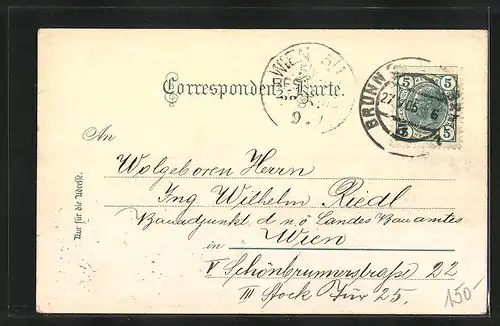 WIEN
Correspondenz-Karte.
BRUNN
27 V 05 6
5 5
5 5
An
Wolgeboren Herrn
Ing Wilhelm Riedl
Bauadjunkt d. n. ö Landes Bauamtes
in Wien
V Schönbrunnerstraße 22
III Stock Tür 25.
Nur für die Adresse.
150-